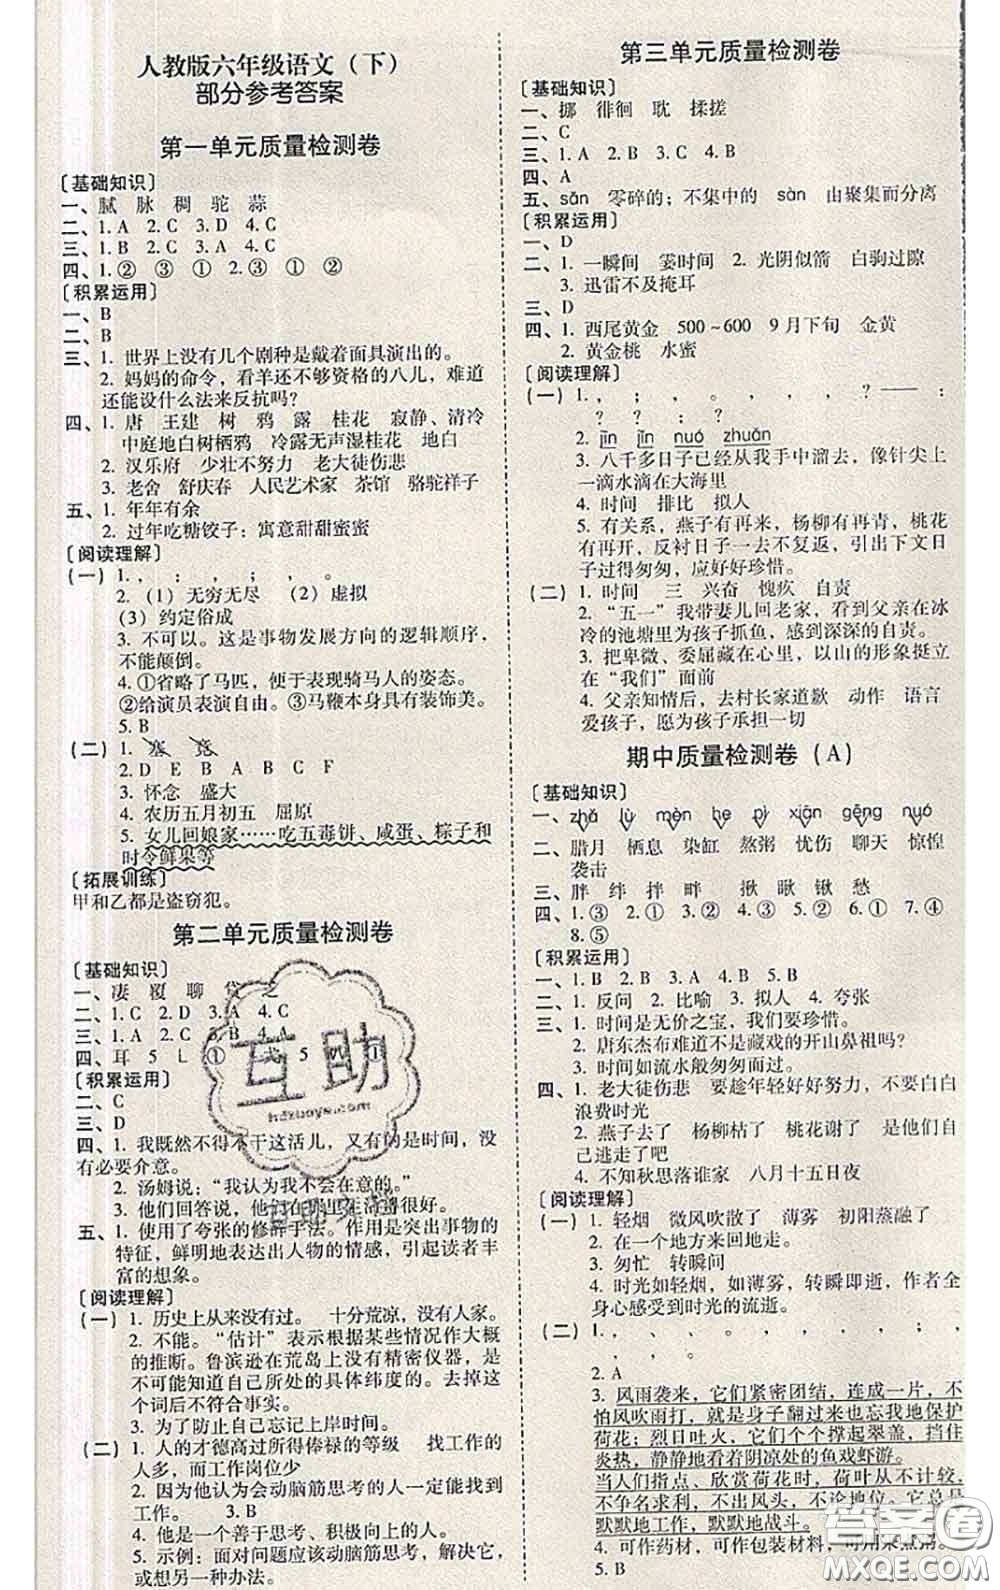 人教版六年级语文（下）
部分参考答案
第一单元质量检测卷
〔基础知识〕
一、腻 脉 稠 驼 蒜
二、1. A 2. C 3. D 4. C
三、1. B 2. C 3. A 4. C
四、1. ② ③ ① 2. ③ ①
〔积累运用〕
一、B
二、B
三、1. 世界上没有几个剧种是戴着面具演出的。
2. 妈妈的命令，看羊还不够资格的八儿，难道
还能设什么法来反抗吗？
四、1. 唐 王建 树 鸦 露 桂花 寂静、清冷
中庭地白树栖鸦 冷露无声湿桂花 地白
2. 汉乐府 少壮不努力 老大徒伤悲
3. 老舍 舒庆春 人民艺术家 茶馆 骆驼祥子
五、1. 年年有余
2. 过年吃糖饺子：寓意甜甜蜜蜜
〔阅读理解〕
（一）1. ， ； ， ； ， 。
2. （1）无穷无尽 （2）虚拟
（3）约定俗成
3. 不可以。这是事物发展方向的逻辑顺序，
不能颠倒。
4. ①省略了马匹，便于表现骑马人的姿态。
②给演员表演自由。③马鞭本身具有装饰美。
5. B
（二）1. 塞 竞
2. D E B A C F
3. 怀念 盛大
4. 农历五月初五 屈原
5. 女儿回娘家……吃五毒饼、咸蛋、粽子和
时令鲜果等
〔拓展训练〕
甲和乙都是盗窃犯。
第二单元质量检测卷
〔基础知识〕
一、凄 覆 聊 贷 乏
二、1. C 2. D 3. A 4. C
三、1. A 2. C 3. B 4. A
四、耳 5 L ① 5 ①
〔积累运用〕
二、C
三、D
四、1. 我既然不得不干这活儿，又有的是时间，没
有必要介意。
2. 汤姆说：“我认为我不会在意的。”
3. 他们回答说，他们在那里生活得很好。
五、1. 使用了夸张的修辞手法。作用是突出事物的
特征，鲜明地表达出人物的情感，引起读者丰
富的想象。
〔阅读理解〕
（一）1. 历史上从来没有过。 十分荒凉，没有人家。
2. 不能。“估计”表示根据某些情况作大概
的推断。鲁滨逊在荒岛上没有精密仪器，是
不可能知道自己所处的具体纬度的。去掉这
个词后不符合事实。
3. 为了防止自己忘记上岸时间。
（二）1. 人的才德高过所得俸禄的等级 找工作的
人多，而工作岗位少
2. 因为他认为动脑筋思考的人一定能找到
工作。 3. B
4. 他是一个善于思考、积极向上的人。
5. 示例：面对问题应该动脑筋思考，想出别
人想不到的办法。
第三单元质量检测卷
〔基础知识〕
一、挪 徘徊 耽 揉搓
二、C
三、1. A 2. B 3. C 4. B
四、A
五、sǎn 零碎的；不集中的 sàn 由聚集而分离
〔积累运用〕
一、D
二、1. 一瞬间 霎时间 2. 光阴似箭 白驹过隙
3. 迅雷不及掩耳
三、D
四、1. 西尾黄金 500～600 9月下旬 金黄
2. 黄金桃 水蜜
〔阅读理解〕
（一）1. ， ； ， 。 ， ， ？ —— ：
？ ？ ： ？
2. jīn jǐn nuó zhuǎn
3. 八千多日子已经从我手中溜去，像针尖上
一滴水滴在大海里
4. 时间 排比 拟人
5. 有关系，燕子有再来，杨柳有再青，桃花
有再开，反衬日子一去不复返，引出下文日
子过得匆匆，应好好珍惜。
（二）1. 时间 三 兴奋 愧疚 自责
2. “五一”我带妻儿回老家，看到父亲在冰
冷的池塘里为孩子抓鱼，感到深深的自责。
3. 把卑微、委屈藏在心里，以山的形象挺立
在“我们”面前
4. 父亲知情后，去村长家道歉 动作 语言
爱孩子，愿为孩子承担一切
期中质量检测卷（A）
〔基础知识〕
一、zhá lù mèn he pì xiān gēng nuó
二、腊月 栖息 染缸 熬粥 忧伤 聊天 惊惶
袭击
三、胖 绊 拌 畔 揪 瞅 锹 愁
四、1. ③ 2. ① 3. ② 4. ③ 5. ② 6. ① 7. ④
8. ⑤
〔积累运用〕
一、1. B 2. B 3. A 4. D 5. B
二、1. 反问 2. 比喻 3. 拟人 4. 夸张
三、1. 时间是无价之宝，我们要珍惜。
2. 唐东杰布难道不是藏戏的开山鼻祖吗？
3. 时间如流水般匆匆而过。
四、1. 老大徒伤悲 要趁年轻好好努力，不要白白
浪费时光
2. 燕子去了 杨柳枯了 桃花谢了 是他们自
己逃走了吧
4. 不知秋思落谁家 八月十五日夜
〔阅读理解〕
（一）1. 轻烟 微风吹散了 薄雾 初阳蒸融了
2. 在一个地方来回地走。
3. 匆忙 转瞬间
4. 时光如轻烟，如薄雾，转瞬即逝，作者全
身心感受到时光的流逝。
（二）1. ， 、 、 。 ， ， ， ， ； ，
， ， 。
2. A
3. 风雨袭来，它们紧密团结，连成一片，不
怕风吹雨打，就是身子翻过来也忘我地保护
荷花；烈日吐火，它们个个撑起翠盖，挡住
炎热，静静地看着阴凉处的鱼戏虾游。
当人们指点、欣赏荷花时，荷叶从不计较，
不争名求利，不出风头，不论地位。它总是
默默地工作，默默地战斗。
4. 可作药材，可作包装材料，可用来煮粥。
5. B
互助
hdzuoye.com
答案圈
MXQE.COM